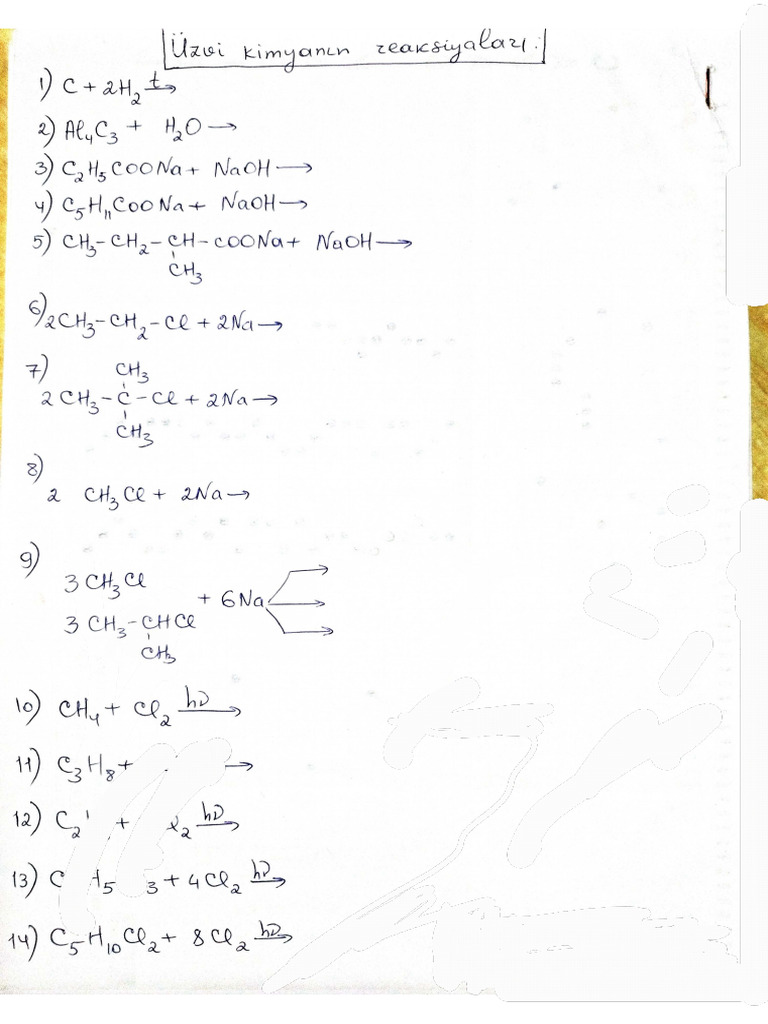 Üzvi kimyanın reaksiyaları:
1) C + 2H₂ t→
2) Al₄C₃ + H₂O →
3) C₂H₅COONa + NaOH →
4) C₅H₁₁COONa + NaOH →
5) CH₃-CH₂-CH-COONa + NaOH →
CH₃
6) 2CH₃-CH₂-Cl + 2Na →
7) CH₃
2CH₃-C-Cl + 2Na →
CH₃
8)
2 CH₃Cl + 2Na →
9)
3CH₃Cl
+ 6Na
3CH₃-CHCl
CH₃
10) CH₄ + Cl₂ hν→
11) C₃H₈ + →
12) C₂ + ₂ hν→
13) C H₅ 3 + 4Cl₂ hν→
14) C₅H₁₀Cl₂ + 8Cl₂ hν→